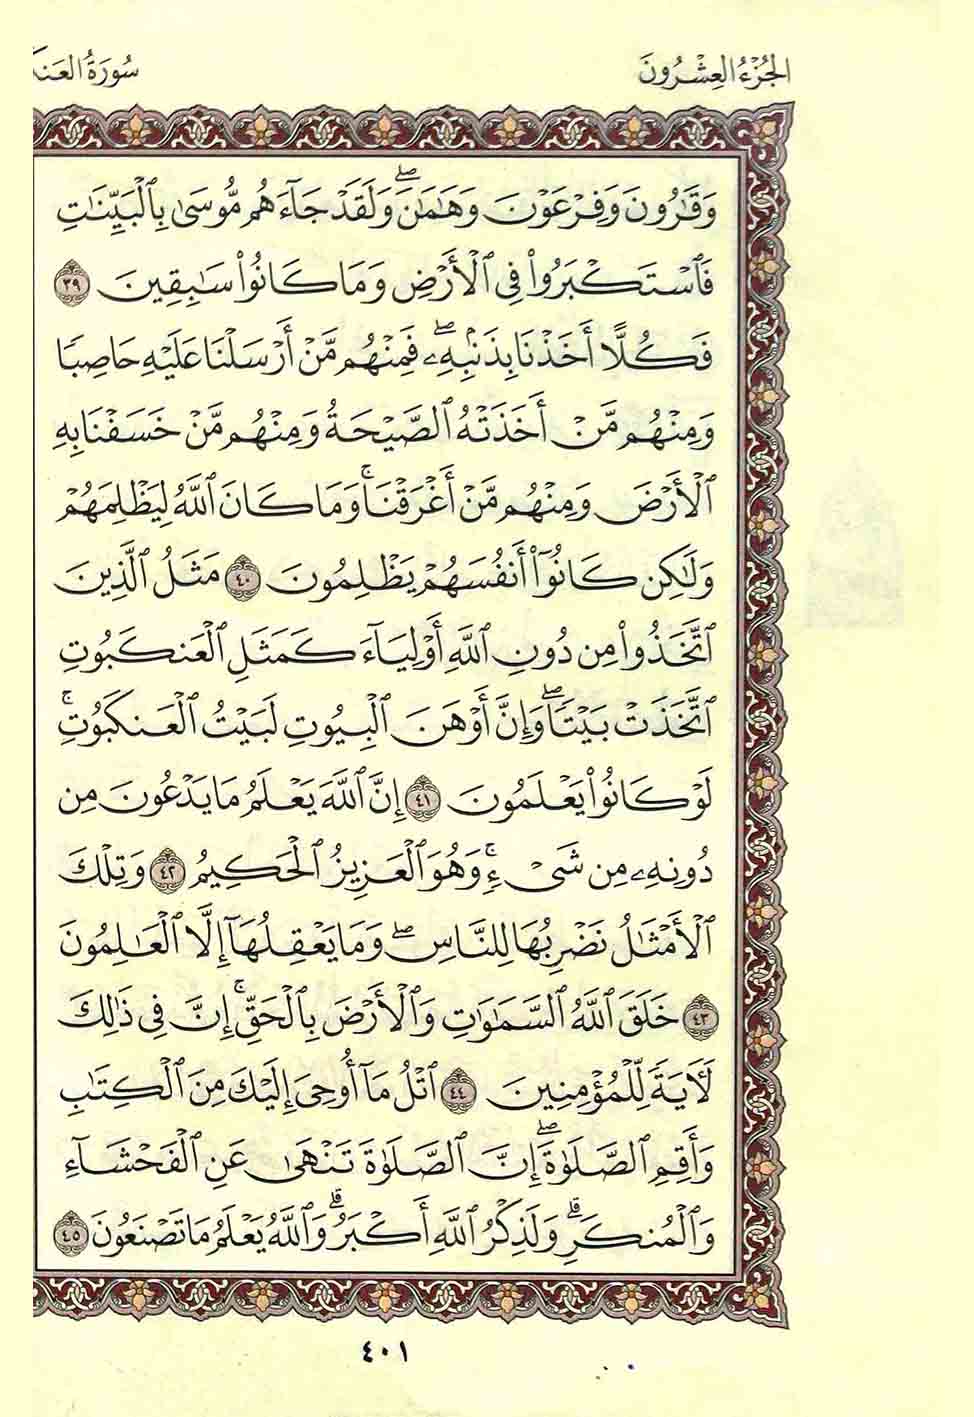 الجزء العشرون
سورة العنك
وَقَٰرُونَ وَفِرْعَوْنَ وَهَٰمَٰنَ ۖ وَلَقَدْ جَآءَهُم مُّوسَىٰ بِالْبَيِّنَٰتِ
فَٱسْتَكْبَرُوا۟ فِى ٱلْأَرْضِ وَمَا كَانُوا۟ سَٰبِقِينَ ٣٩
فَكُلًّا أَخَذْنَا بِذَنۢبِهِۦ ۖ فَمِنْهُم مَّنْ أَرْسَلْنَا عَلَيْهِ حَاصِبًا
وَمِنْهُم مَّنْ أَخَذَتْهُ ٱلصَّيْحَةُ وَمِنْهُم مَّنْ خَسَفْنَا بِهِ
ٱلْأَرْضَ وَمِنْهُم مَّنْ أَغْرَقْنَا ۚ وَمَا كَانَ ٱللَّهُ لِيَظْلِمَهُمْ
وَلَٰكِن كَانُوٓا۟ أَنفُسَهُمْ يَظْلِمُونَ ٤٠ مَثَلُ ٱلَّذِينَ
ٱتَّخَذُوا۟ مِن دُونِ ٱللَّهِ أَوْلِيَآءَ كَمَثَلِ ٱلْعَنكَبُوتِ
ٱتَّخَذَتْ بَيْتًا ۖ وَإِنَّ أَوْهَنَ ٱلْبُيُوتِ لَبَيْتُ ٱلْعَنكَبُوتِ ۚ
لَوْ كَانُوا۟ يَعْلَمُونَ ٤١ إِنَّ ٱللَّهَ يَعْلَمُ مَا يَدْعُونَ مِن
دُونِهِۦ مِن شَىْءٍ ۚ وَهُوَ ٱلْعَزِيزُ ٱلْحَكِيمُ ٤٢ وَتِلْكَ
ٱلْأَمْثَٰلُ نَضْرِبُهَا لِلنَّاسِ ۖ وَمَا يَعْقِلُهَآ إِلَّا ٱلْعَٰلِمُونَ
٤٣ خَلَقَ ٱللَّهُ ٱلسَّمَٰوَٰتِ وَٱلْأَرْضَ بِٱلْحَقِّ ۚ إِنَّ فِى ذَٰلِكَ
لَءَايَةً لِّلْمُؤْمِنِينَ ٤٤ ٱتْلُ مَآ أُوحِىَ إِلَيْكَ مِنَ ٱلْكِتَٰبِ
وَأَقِمِ ٱلصَّلَوٰةَ ۖ إِنَّ ٱلصَّلَوٰةَ تَنْهَىٰ عَنِ ٱلْفَحْشَآءِ
وَٱلْمُنكَرِ ۗ وَلَذِكْرُ ٱللَّهِ أَكْبَرُ ۗ وَٱللَّهُ يَعْلَمُ مَا تَصْنَعُونَ ٤٥
٤٠١